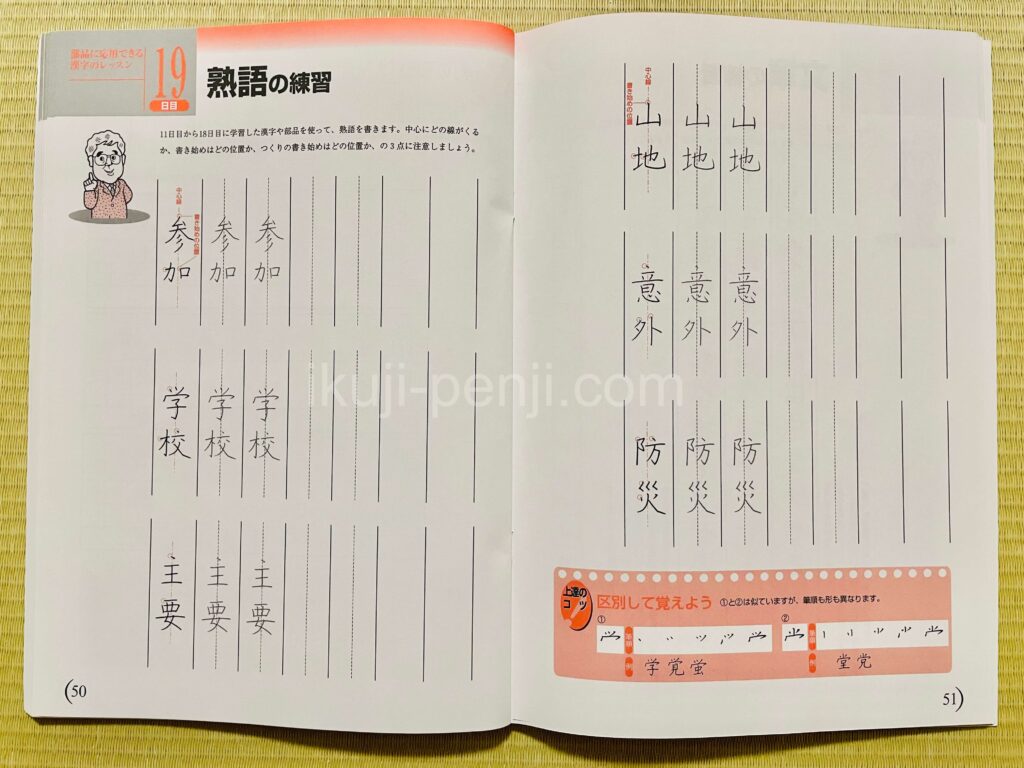 部品に応用できる
漢字のレッスン
19
日目
熟語の練習
11日目から18日目に学習した漢字や部品を使って、熟語を書きます。中心にどの線がくる
か、書き始めはどの位置か、つくりの書き始めはどの位置か、の3点に注意しましょう。
中心線
書き始めの位置
参加 参加 参加
学校 学校 学校
主要 主要 主要
50
中心線
書き始めの位置
山地 山地 山地
意外 意外 意外
防災 防災 防災
上達の
コツ
区別して覚えよう ①と②は似ていますが、筆順も形も異なります。
①
筆順
例 学 覚 蛍
②
筆順
例 堂 党
51
ikuji-penji.com